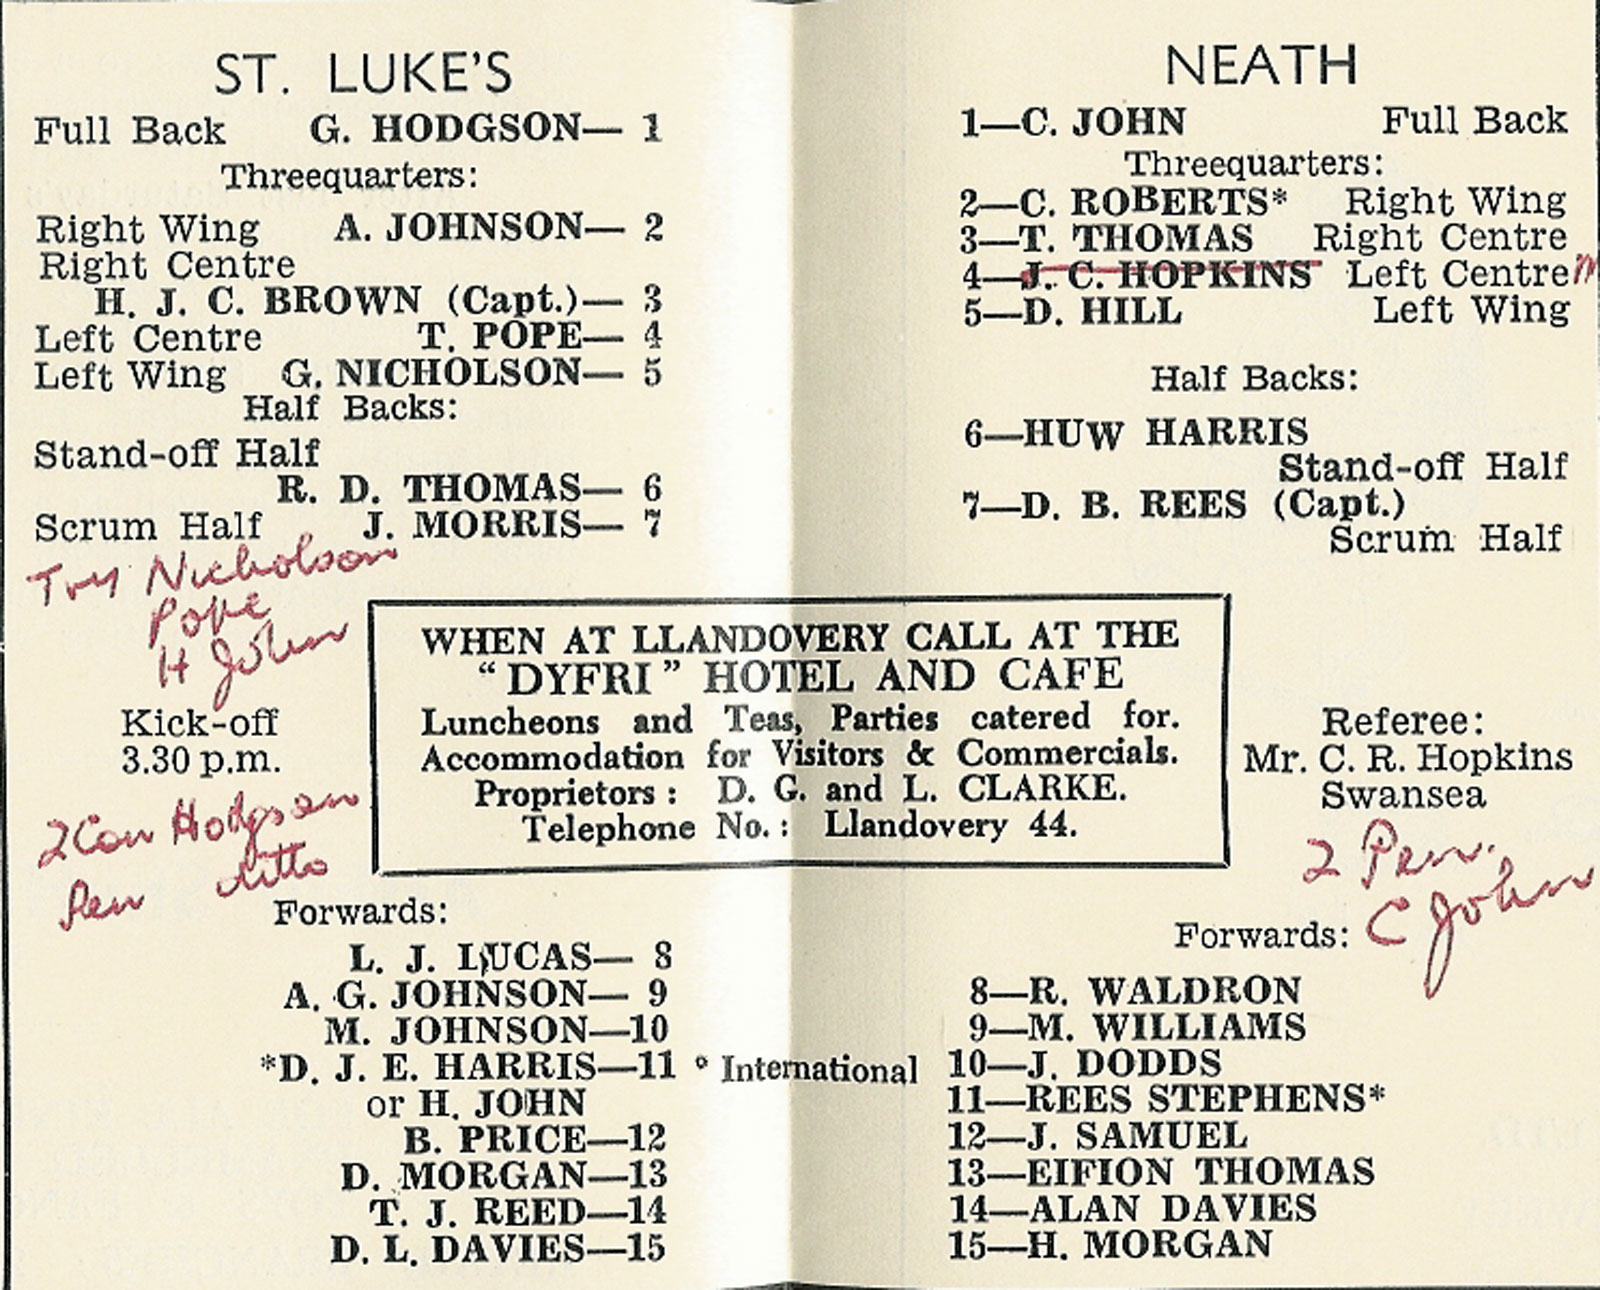 ST. LUKE'S
Full Back G. HODGSON— 1
Threequarters:
Right Wing A. JOHNSON— 2
Right Centre
H. J. C. BROWN (Capt.)— 3
Left Centre T. POPE— 4
Left Wing G. NICHOLSON— 5
Half Backs:
Stand-off Half
R. D. THOMAS— 6
Scrum Half J. MORRIS— 7
Try Nicholson
Pope
H John
Kick-off
3.30 p.m.
2 Con Hodgson
Pen ditto
NEATH
1—C. JOHN Full Back
Threequarters:
2—C. ROBERTS* Right Wing
3—T. THOMAS Right Centre
4—J. C. HOPKINS Left Centre
5—D. HILL Left Wing
Half Backs:
6—HUW HARRIS
Stand-off Half
7—D. B. REES (Capt.)
Scrum Half
WHEN AT LLANDOVERY CALL AT THE
“DYFRI” HOTEL AND CAFE
Luncheons and Teas, Parties catered for.
Accommodation for Visitors & Commercials.
Proprietors: D. G. and L. CLARKE.
Telephone No.: Llandovery 44.
Referee:
Mr. C. R. Hopkins
Swansea
2 Pen.
C John
Forwards:
L. J. LUCAS— 8
A. G. JOHNSON— 9
M. JOHNSON—10
*D. J. E. HARRIS—11
or H. JOHN
B. PRICE—12
D. MORGAN—13
T. J. REED—14
D. L. DAVIES—15
° International
Forwards:
8—R. WALDRON
9—M. WILLIAMS
10—J. DODDS
11—REES STEPHENS*
12—J. SAMUEL
13—EIFION THOMAS
14—ALAN DAVIES
15—H. MORGAN